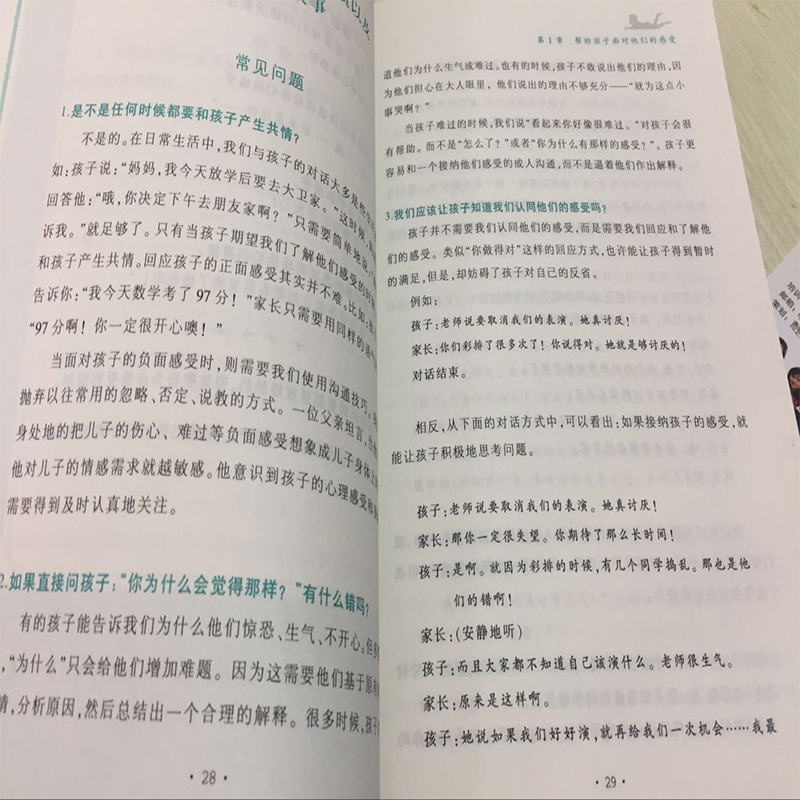 事
以及
常见问题
1.是不是任何时候都要和孩子产生共情？
不是的。在日常生活中，我们与孩子的对话大多是些
如：孩子说：“妈妈，我今天放学后要去大卫家。”这时候，
回答他：“哦，你决定下午去朋友家啊？”只需要简单地说
诉我。”就足够了。只有当孩子期望我们了解他们感受的时
和孩子产生共情。回应孩子的正面感受其实并不难。比如：
告诉你：“我今天数学考了97分！”家长只需要用同样的语气
“97分啊！你一定很开心噢！”
当面对孩子的负面感受时，则需要我们使用沟通技巧，
抛弃以往常用的忽略、否定、说教的方式。一位父亲坦言，当他
身处地的把儿子的伤心、难过等负面感受想象成儿子身体上
他对儿子的情感需求就越敏感。他意识到孩子的心理感受和
需要得到及时认真地关注。
2.如果直接问孩子：“你为什么会觉得那样？”有什么错吗？
有的孩子能告诉我们为什么他们惊恐、生气、不开心。但
，“为什么”只会给他们增加难题。因为这需要他们基于原
情，分析原因，然后总结出一个合理的解释。很多时候，孩子
·28·
第1章 帮助孩子面对他们的感受
道他们为什么生气或难过。也有的时候，孩子不敢说出他们的理由，因
为他们担心在大人眼里，他们说出的理由不够充分——“就为这点小
事哭啊？”
当孩子难过的时候，我们说“看起来你好像很难过。”对孩子会很
有帮助。而不是“怎么了？”或者“你为什么有那样的感受？”。孩子更
容易和一个接纳他们感受的成人沟通，而不是逼着他们作出解释。
3.我们应该让孩子知道我们认同他们的感受吗？
孩子并不需要我们认同他们的感受，而是需要我们回应和了解他
们的感受。类似“你做得对”这样的回应方式，也许能让孩子得到暂时
的满足，但是，却妨碍了孩子对自己的反省。
例如：
孩子：老师说要取消我们的表演。她真讨厌！
家长：你们彩排了很多次了！你说得对。她就是够讨厌的！
对话结束。
相反，从下面的对话方式中，可以看出：如果接纳孩子的感受，就
能让孩子积极地思考问题。
孩子：老师说要取消我们的表演。她真讨厌！
家长：那你一定很失望。你期待了那么长时间！
孩子：是啊。就因为彩排的时候，有几个同学捣乱。那也是他
们的错啊！
家长：（安静地听）
孩子：而且大家都不知道自己该演什么。老师很生气。
家长：原来是这样啊。
孩子：她说如果我们好好演，就再给我们一次机会……我最
·29·
培训
邮箱：